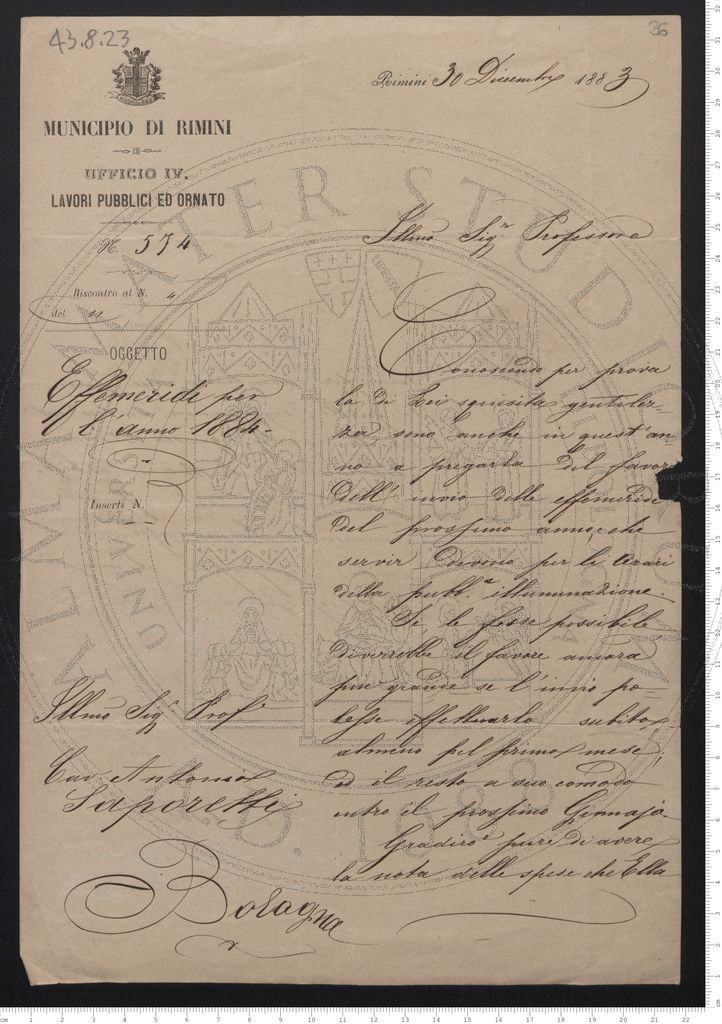 43.8.23
36
Rimini 30 Dicembre 1883
MUNICIPIO DI RIMINI
UFFICIO IV.
LAVORI PUBBLICI ED ORNATO
N. 574
Riscontro al N.
del
OGGETTO
Effemeridi per
l'anno 1884.
Inserti N.
Illmo Sigr Professore
Conoscendo per prova
la di Lei squisita gentilez-
za, sono anche in quest'an-
no a pregarla del favore
dell'invio delle effemeridi
del prossimo anno, che
servir devono per le orari
della pubb.a illuminazione.
Se le fosse possibile
diverrebbe il favore ancora
più grande se l'invio po-
tesse effettuarlo subito,
almeno pel primo mese,
ed il resto a suo comodo
entro il prossimo Gennajo
Gradirò pure di avere
la nota delle spese che Ella
Illmo Sigr Profr
Cav. Antonio
Saporetti
Bologna
ALMA MATER STUDIORUM
A.D. 1088